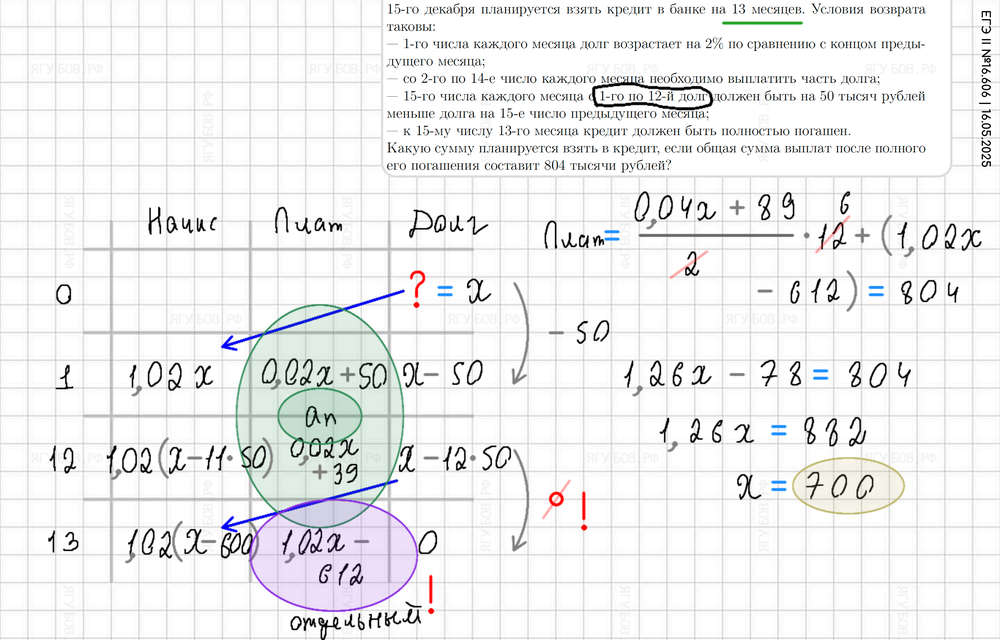 15-го декабря планируется взять кредит в банке на 13 месяцев. Условия возврата
таковы:
— 1-го числа каждого месяца долг возрастает на 2% по сравнению с концом преды-
дущего месяца;
— со 2-го по 14-е число каждого месяца необходимо выплатить часть долга;
— 15-го числа каждого месяца с 1-го по 12-й долг должен быть на 50 тысяч рублей
меньше долга на 15-е число предыдущего месяца;
— к 15-му числу 13-го месяца кредит должен быть полностью погашен.
Какую сумму планируется взять в кредит, если общая сумма выплат после полного
его погашения составит 804 тысячи рублей?
ЕГЭ II №16.606 | 16.05.2025
Начис Плат Долг
0 ? = x
- 50
1 1,02x 0,02x+50 x-50
an
12 1,02(x-11·50) 0,02x +39 x-12·50
0 !
13 1,02(x-600) 1,02x - 612 0
отдельный!
Плат = (0,04x + 89)/2 · 12 6 + (1,02x
- 612) = 804
1,26x - 78 = 804
1,26x = 882
x = 700
ЯГУБОВ.РФ